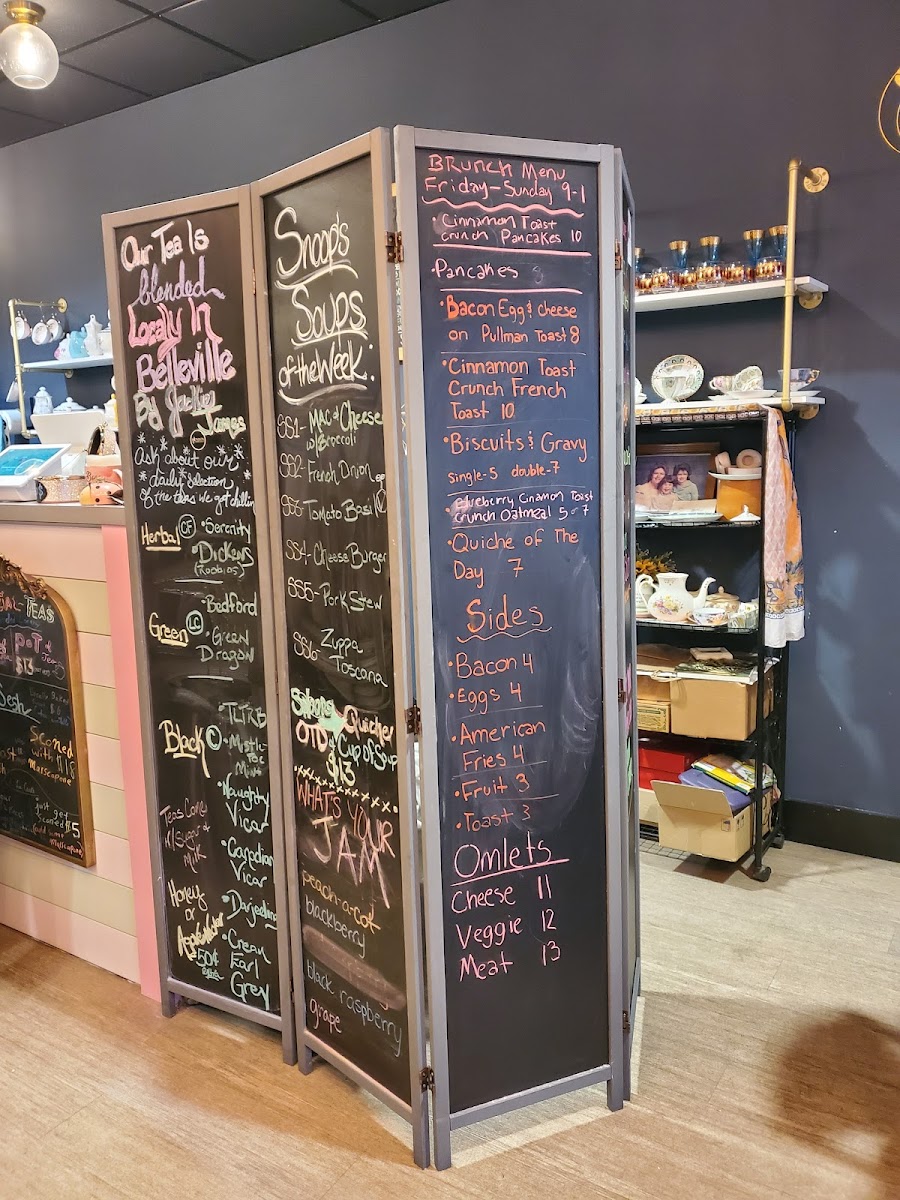 Our Tea Is
blended
Locally In
Belleville
By Jackie
James
Ask about our
daily selection
of the teas we got chillin
Herbal CF • Serenity
• Dickens
(Rooibos)
Green LC • Bedford
• Green
Dragon
Black C • TLTRB
• Mistle-
Toe
Mint
• Naughty
Vicar
• Canadian
Vicar
• Darjeeling
• Cream
Earl
Grey
Teas Come
w/ Sugar &
Milk
Honey
or
50¢
Snoop's
Soups
of the Week:
SS1- Mac & Cheese
w/ Broccoli
SS2- French Onion
SS3- Tomato Basil
SS4- Cheese Burger
SS5- Pork Stew
SS6- Zuppa
Toscana
Snoops Quiche
OTD & Cup of Soup
$13
WHAT'S YOUR
JAM
peach-a-cot
blackberry
black raspberry
grape
BRUNCH Menu
Friday - Sunday 9-1
• Cinnamon Toast
crunch Pancakes 10
• Pancakes 8
• Bacon Egg & cheese
on Pullman Toast 8
• Cinnamon Toast
Crunch French
Toast 10
• Biscuits & Gravy
single-5 double-7
• Blueberry Cinamon Toast
Crunch Oatmeal 5 or 7
• Quiche of The
Day 7
Sides
• Bacon 4
• Eggs 4
• American
Fries 4
• Fruit 3
• Toast 3
Omlets
Cheese 11
Veggie 12
Meat 13
TEAS
POT
$13
Sesh
Scones
with
Marscapone
just
$5